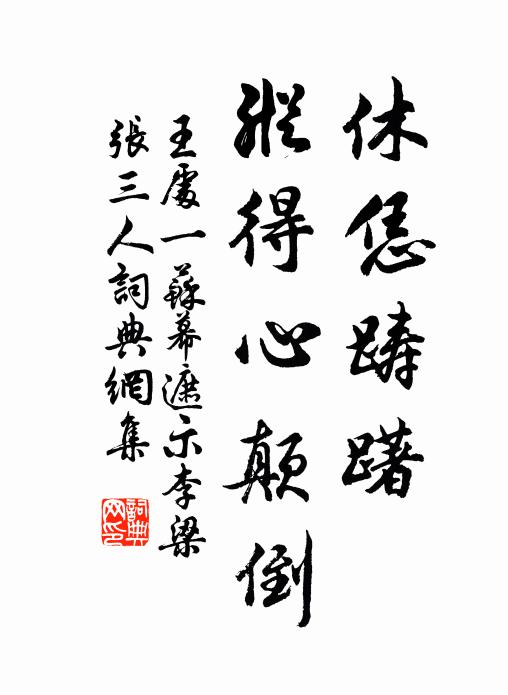 休恁踌躇
縱得心顛倒
王處一蘇幕遮示李梁
張三人詞典網集
詞典
网印